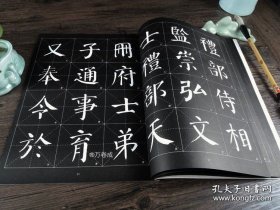 禮部侍相
監崇弘文
士禮部天
冊府士弟
子通事
又奉令於
孔夫子旧书网